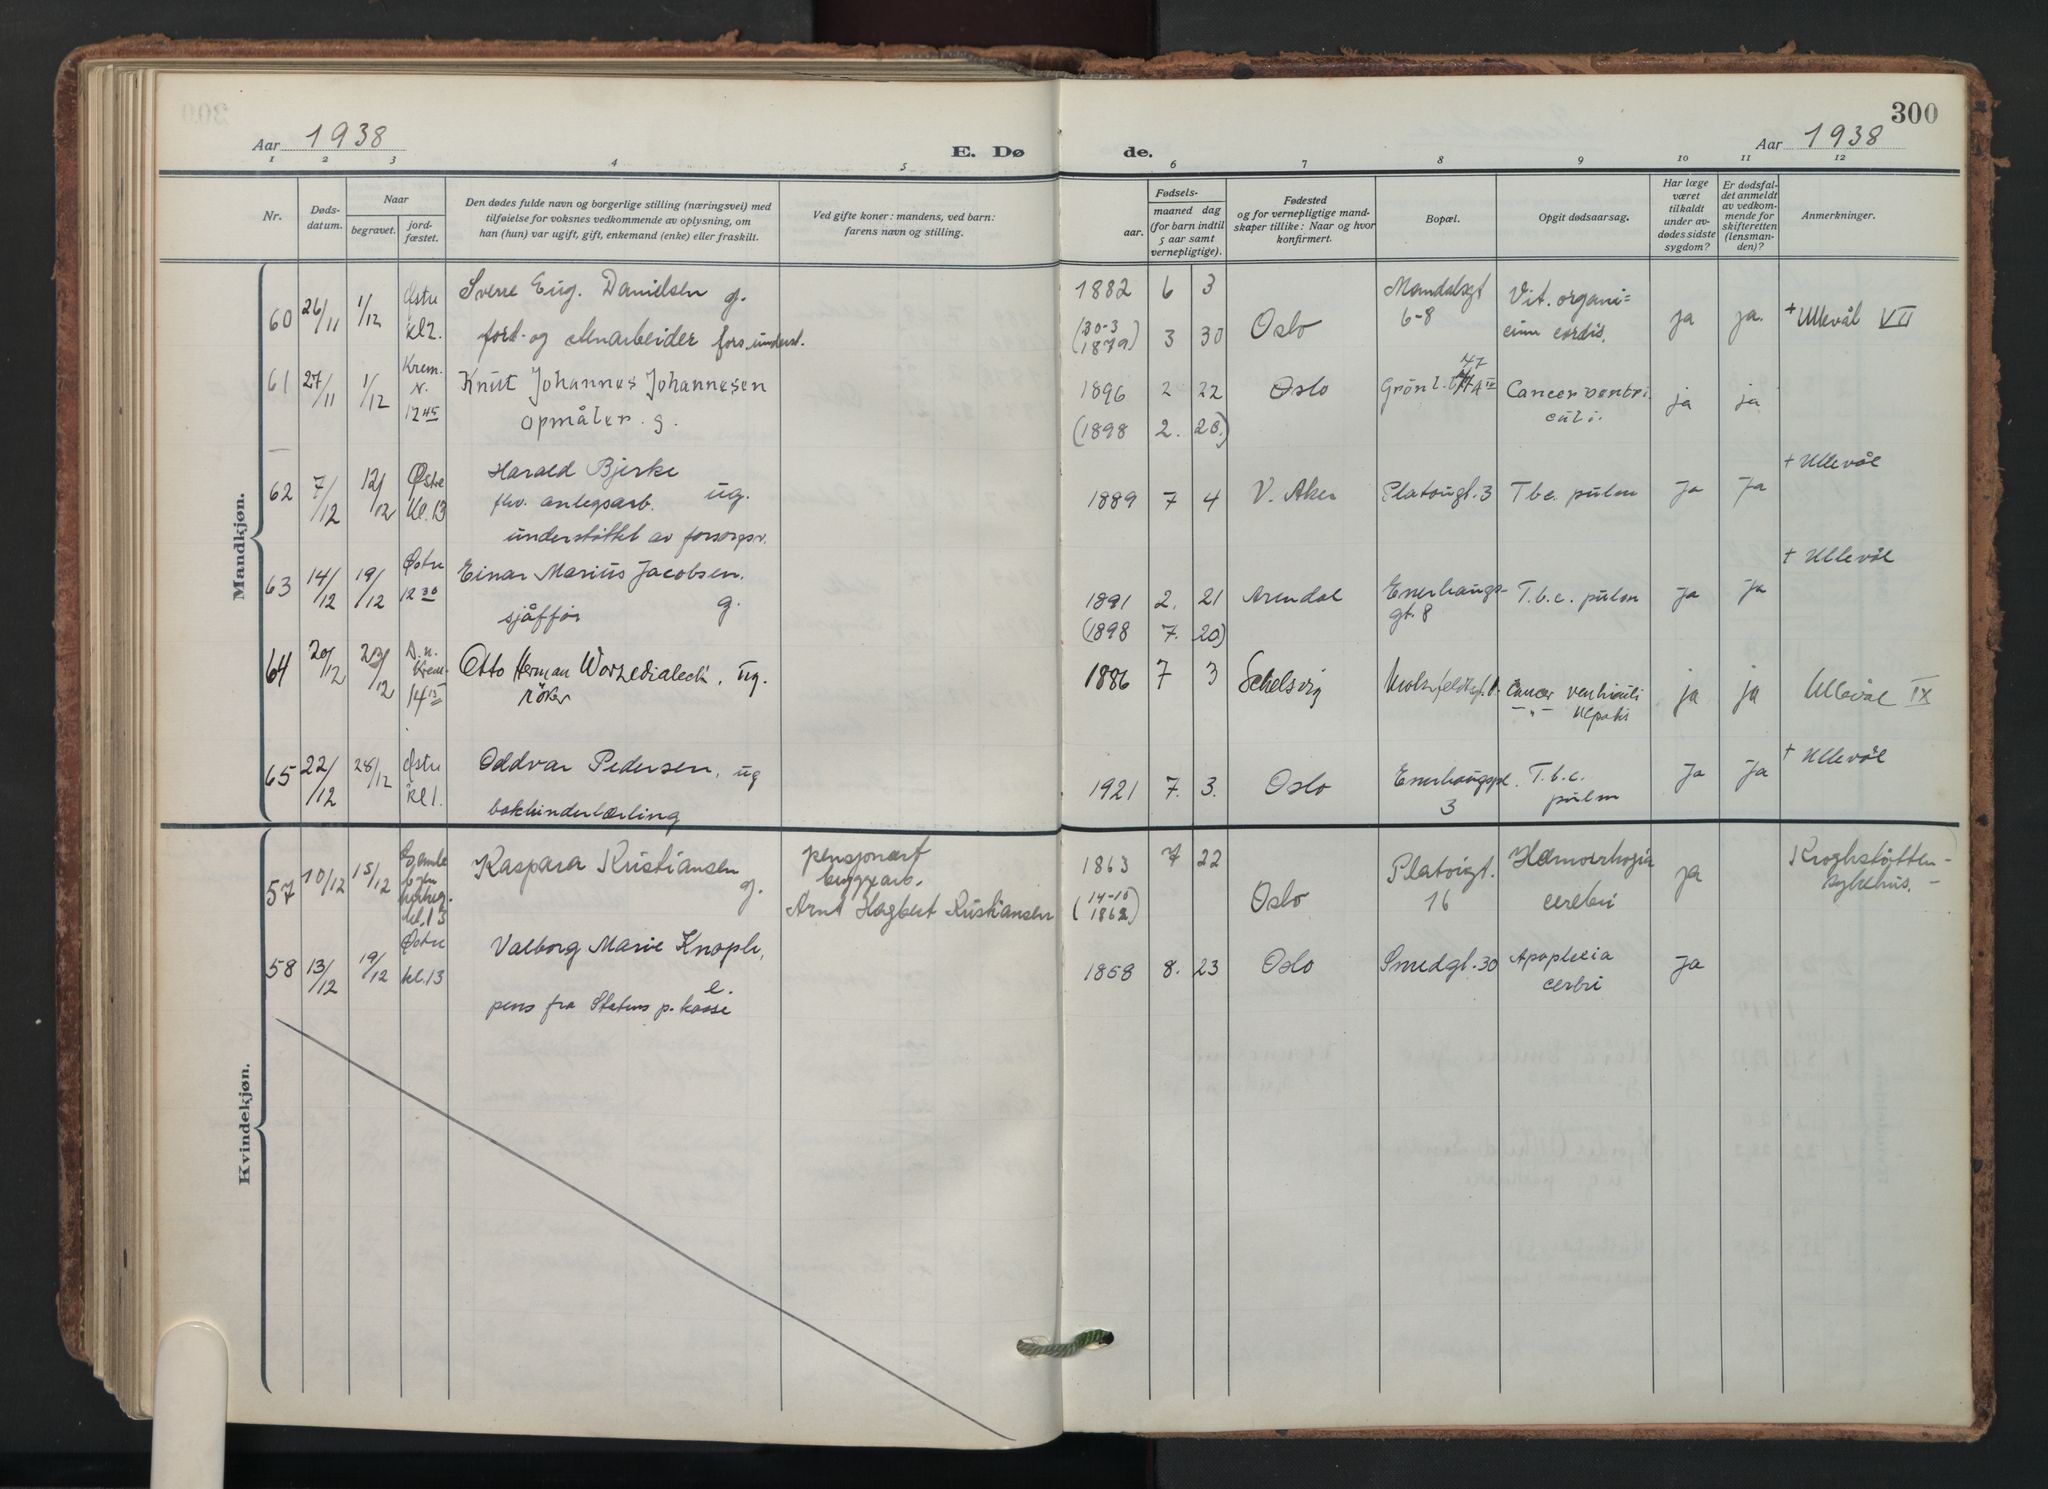 300
Aar 1938
E. Dø
de.
Aar 1938
1 2 3 4 5 6 7 8 9 10 11 12
Nr.
Døds-
datum.
Naar
begravet.
jord-
fæstet.
Den dødes fulde navn og borgerlige stilling (næringsvei) med
tilføielse for voksnes vedkommende av oplysning, om
han (hun) var ugift, gift, enkemand (enke) eller fraskilt.
Ved gifte koner: mandens, ved barn:
farens navn og stilling.
Fødsels-
aar.
maaned dag
(for barn indtil
5 aar samt
vernepligtige).
Fødested
og for vernepligtige mand-
skaper tillike: Naar og hvor
konfirmert.
Bopæl.
Opgit dødsaarsag.
Har læge
været
tilkaldt
under av-
dødes sidste
sygdom?
Er dødsfal-
det anmeldt
av vedkom-
mende for
skifteretten
(lensman-
den)?
Anmerkninger.
Mandkjøn.
60 26/11 1/12 Østre kl 2. Sverre Eug. Danielsen g. 1882 6 3 Oslo Mandalsgt 6-8 Vit. organi=
cum cordis. ja ja. + Ullevål VII
ford. og alm arbeider fors. underst. (30-3 1879) 3 30
61 27/11 1/12 Krem. v. 12 45 Knut Johannes Johannesen 1896 2 22 Oslo Grønl. Cancer ventri
culi. ja ja
opmåler. g. (1898 2. 20.)
62 7/12 12/12 Østre Kl. 13 Harald Bjerke 1889 7 4 V. Aker Platougt. 3 Tbc. pulm ja ja + Ullevål
fhv. anlegsarb. ug.
understøttet av forsorgsv.
63 14/12 19/12 Østre 12 30 Einar Marius Jacobsen. 1891 2. 21 Arendal Enerhaugs-
gt. 8 T.b.c. pulm ja ja + Ullevål
sjåfför g. (1898 7. 20)
64 20/12 23/12 D. n. Krem. 14 15 Otto Herman ug. 1886 7 3 Cancer ventriculi
— „ — ja ja Ullevål IX
65 22/12 28/12 Østre kl 1. Oddvar Pedersen, ug 1921 7. 3. Oslo Enerhaugpl.
3 T.b.c.
pulm ja ja + Ullevål
bokbinderlærling
Kvindekjøn.
57 10/12 15/12 Gamle kl. 13 Kaspara Kristiansen g. pensjonert
byggearb.
Arnt Hagbert Kristiansen 1863 7 22 (14-10 1862) Oslo Platougt.
16 Hæmorrhagia
cerebri ja Krohstøtten-
sykehus.
58 13/12 19/12 Østre kl. 13 Valborg Marie Knoph, 1858 8. 23 Oslo Smedgt. 30 Apoplexia
cerbri ja
e.
pens fra Statens p. kasse